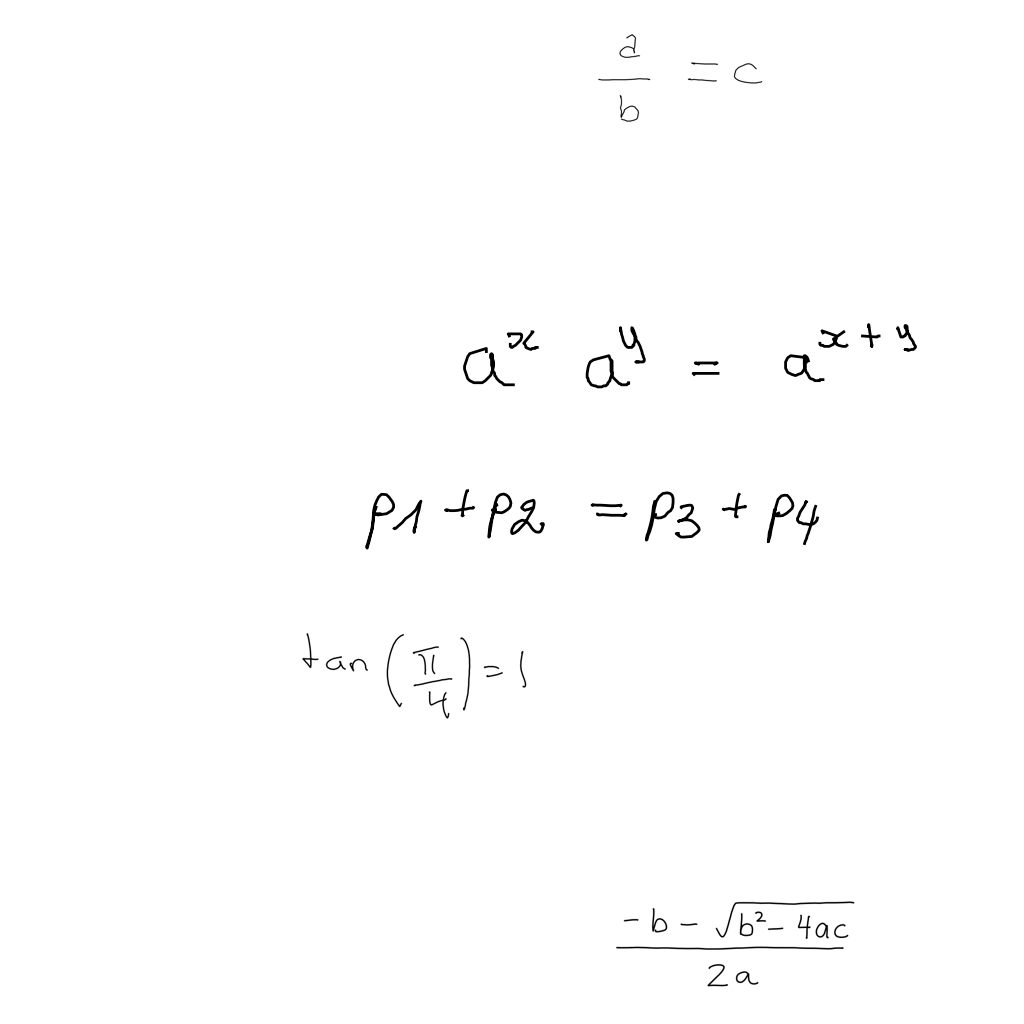 \frac{a}{b} = c
a^x a^y = a^{x+y}
p1 + p2 = p3 + p4
\tan\left(\frac{\pi}{4}\right) = 1
\frac{-b - \sqrt{b^2 - 4ac}}{2a}